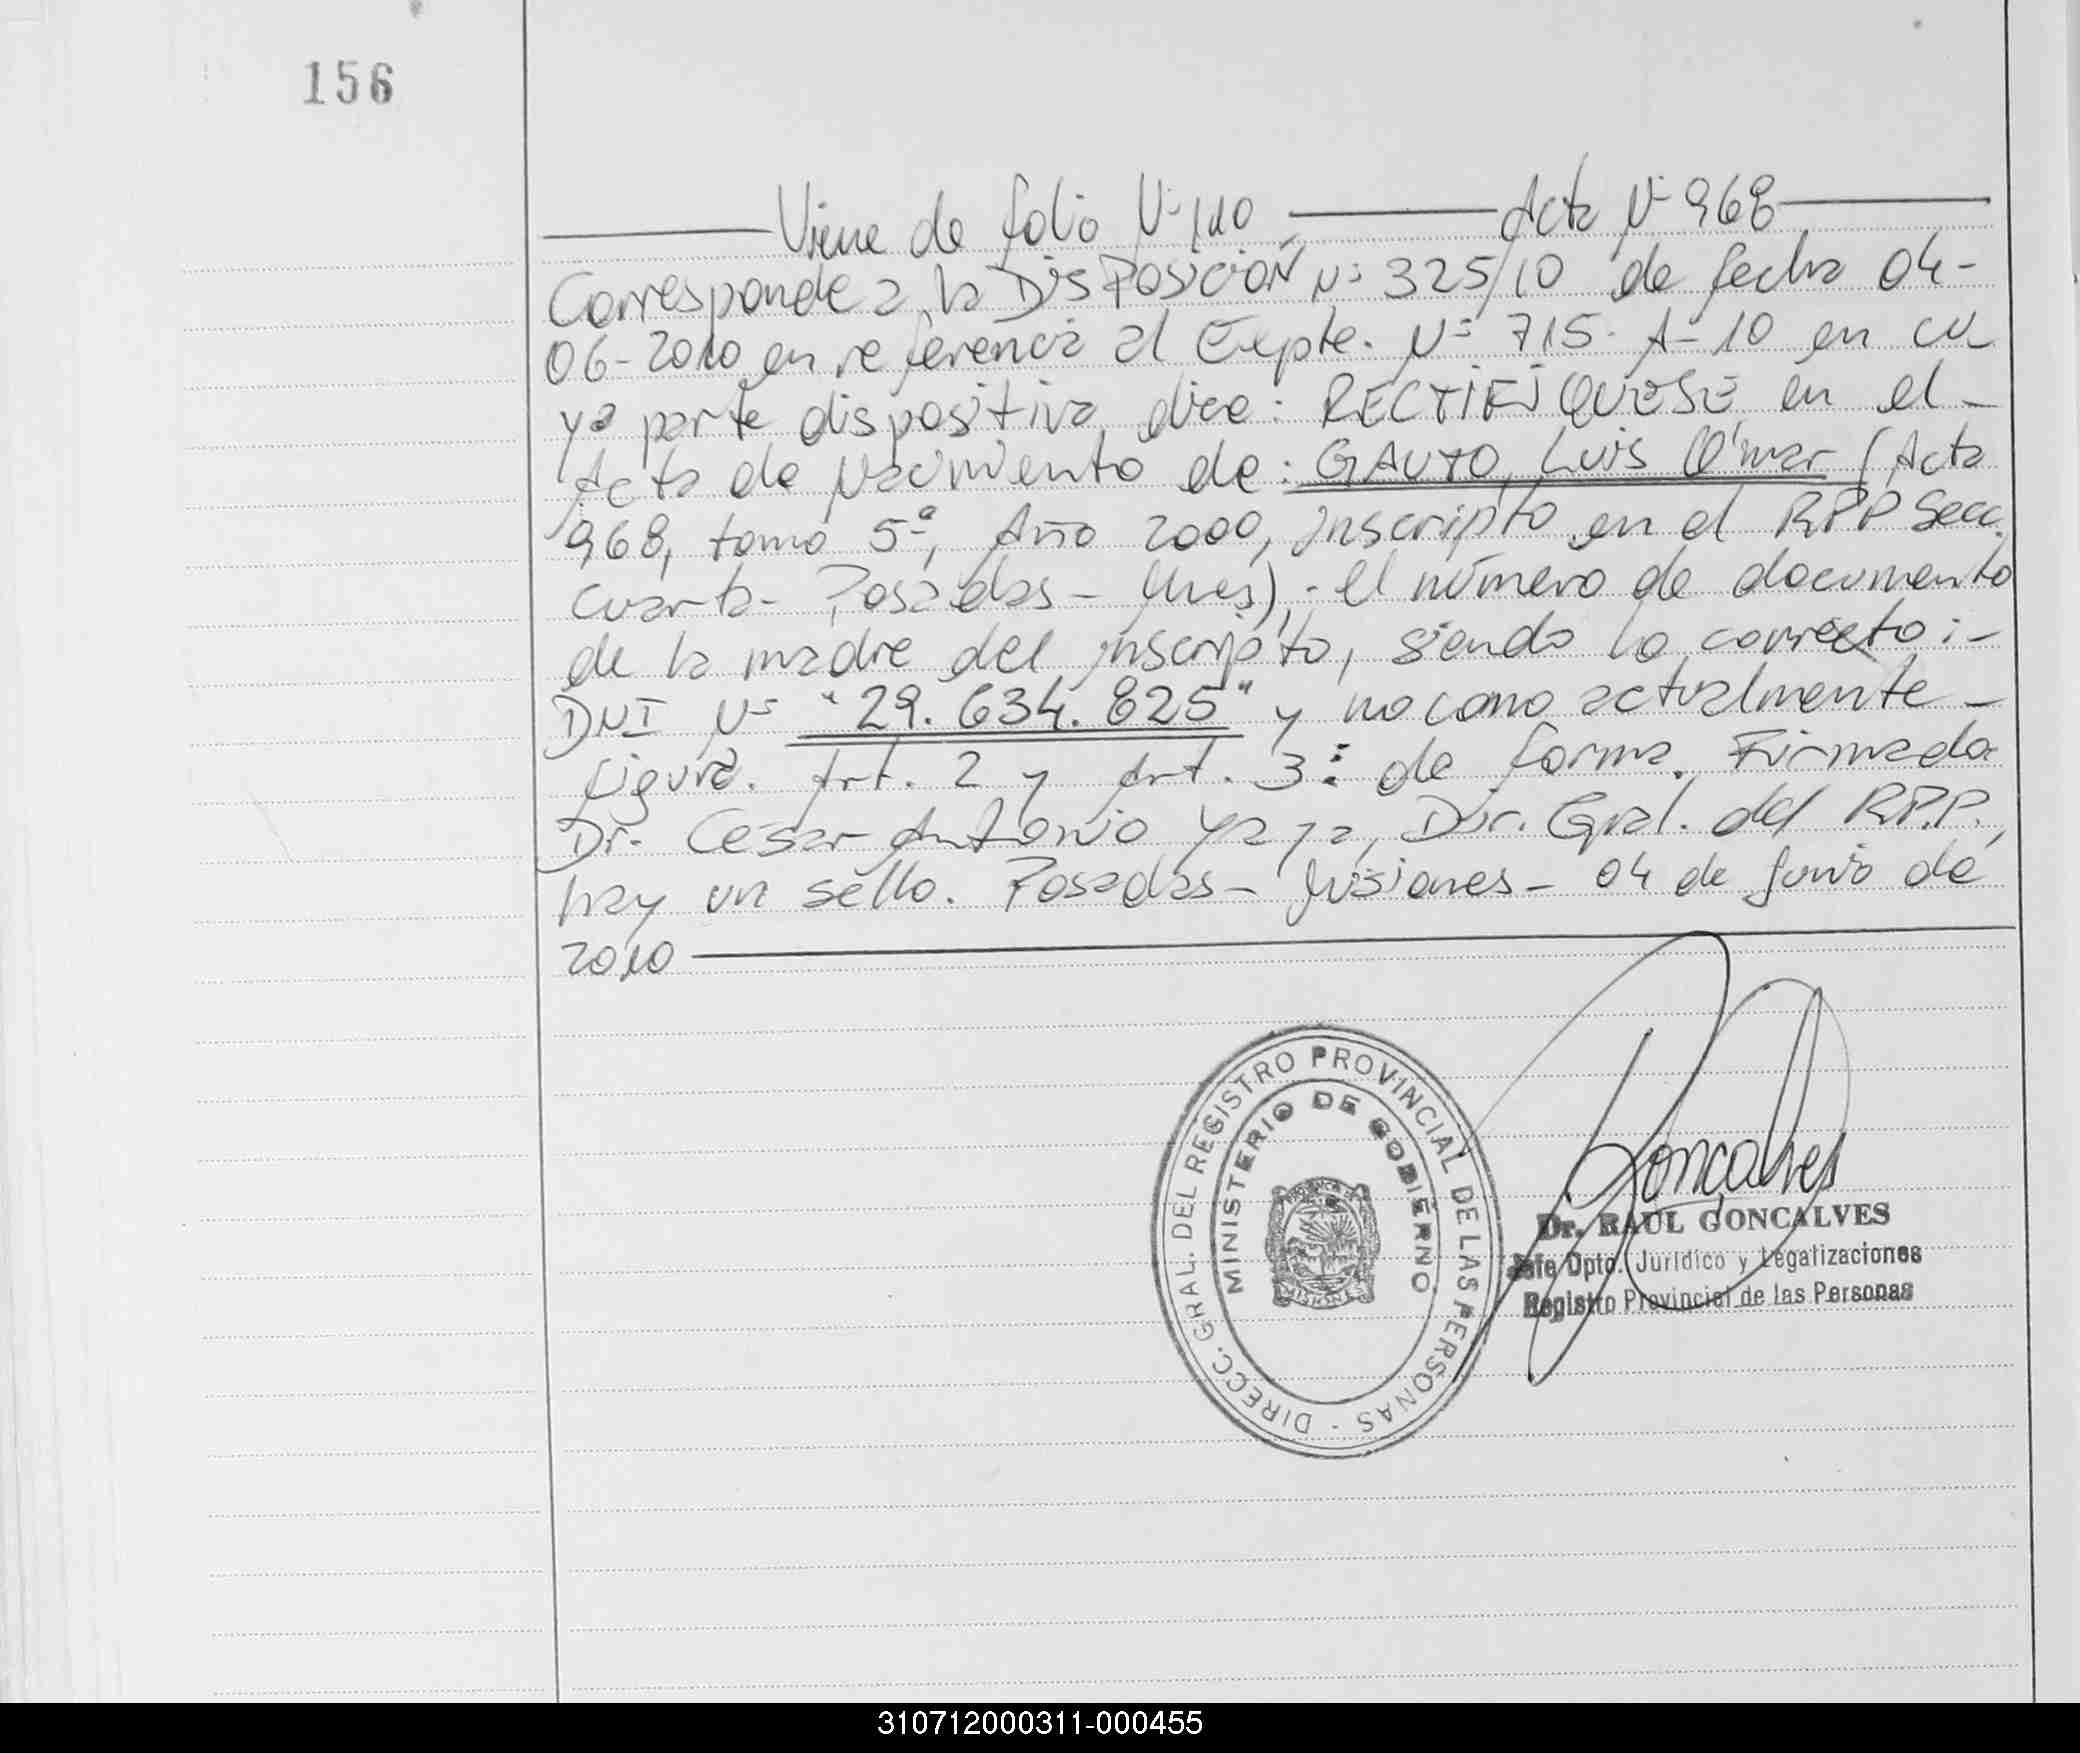 156
Viene de folio Nº 110 Acta Nº 968
Corresponde a la DISPOSICION Nº 325/10 de fecha 04-
06-2010 en referencia al Expte. Nº 715-A-10 en cu
ya parte dispositiva dice: RECTIFIQUESE en el -
Acta de Nacimiento de: GAUTO, Luis Omar (Acta
968, tomo 5º, Año 2000, Inscripto en el RPP Secc.
Cuarta - Posadas - Mnes), - el número de documento
de la madre del inscripto, siendo lo correcto: -
DNI Nº "29.634.825" y no como actualmente -
figura. Art. 2 y Art. 3: de forma. Firmado
Dr. Cesar Antonio Yaya, Dir. Gral. del R.P.P.,
hay un sello. Posadas - Misiones - 04 de Junio de
2010
DIRECC. GRAL. DEL REGISTRO PROVINCIAL DE LAS PERSONAS -
MINISTERIO DE GOBIERNO
PROVINCIA DE
MISIONES
Goncalves
Dr. RAUL GONCALVES
Jefe Dpto. Jurídico y Legalizaciones
Registro Provincial de las Personas
310712000311-000455